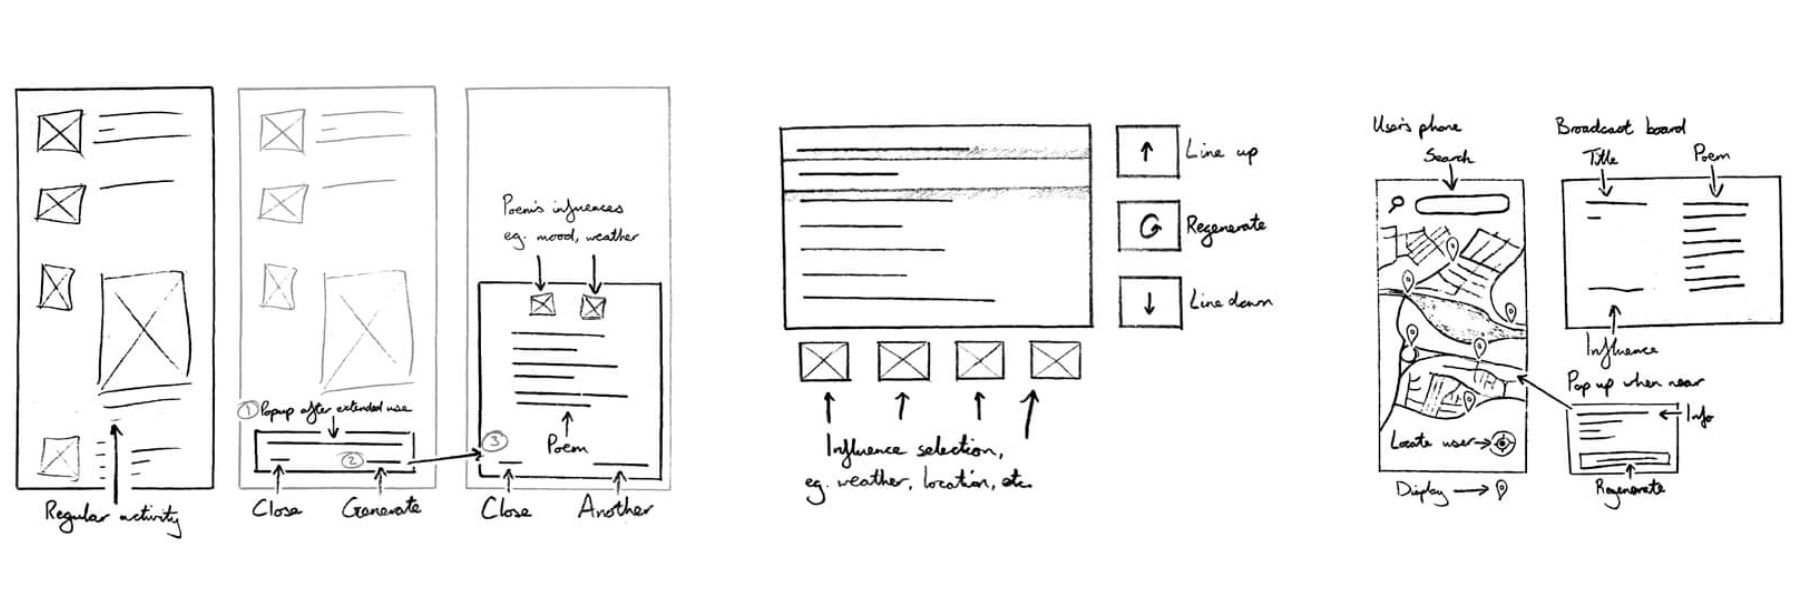 Regular activity
① Popup after extended use
②
Close
Generate
Poem's influences
eg. mood, weather
Poem
③
Close
Another
Line up
Regenerate
Line down
Influence selection,
eg. weather, location, etc.
User's phone
Search
Locate user
Display
Broadcast board
Title
Poem
Influence
Pop up when near
Info
Regenerate